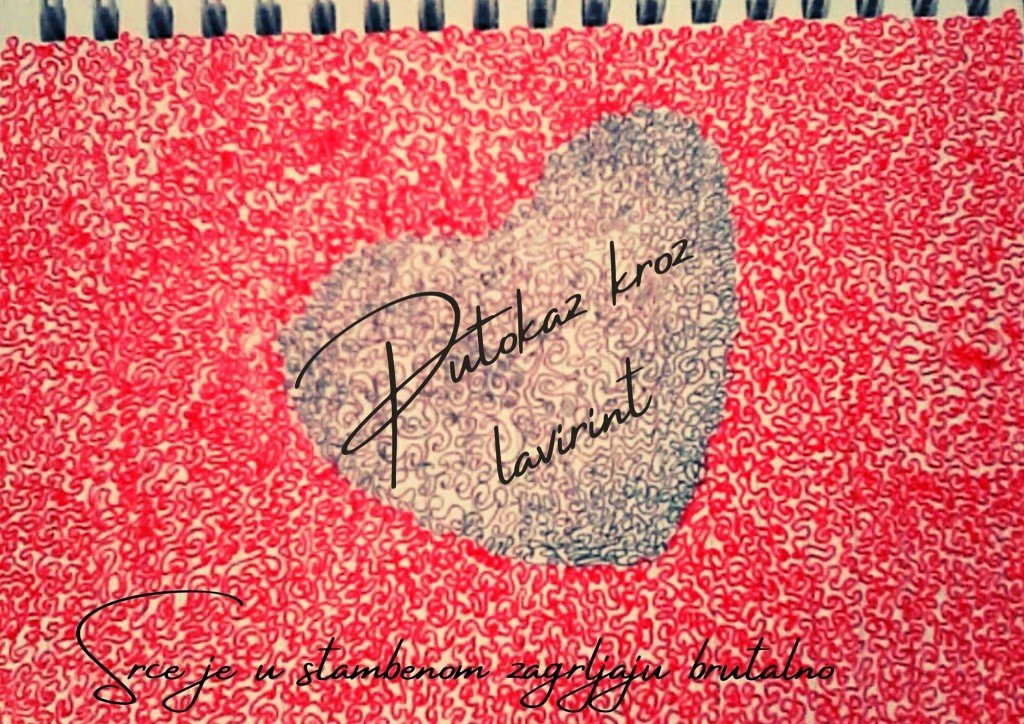 Putokaz kroz
lavirint
Srce je u stambenom zagrljaju brutalno